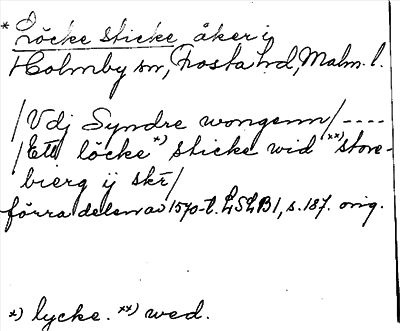 * Löcke sticke åker i
Holmby sn, Frosta hd, Malm. l.
/Vdj Syndre wongenn/----
/Ett löcke *) sticke wid **) store-
bierg ij skr/
förra delen av 1570-t. LSLB1, s. 187. orig.
*) lycke. **) wed.